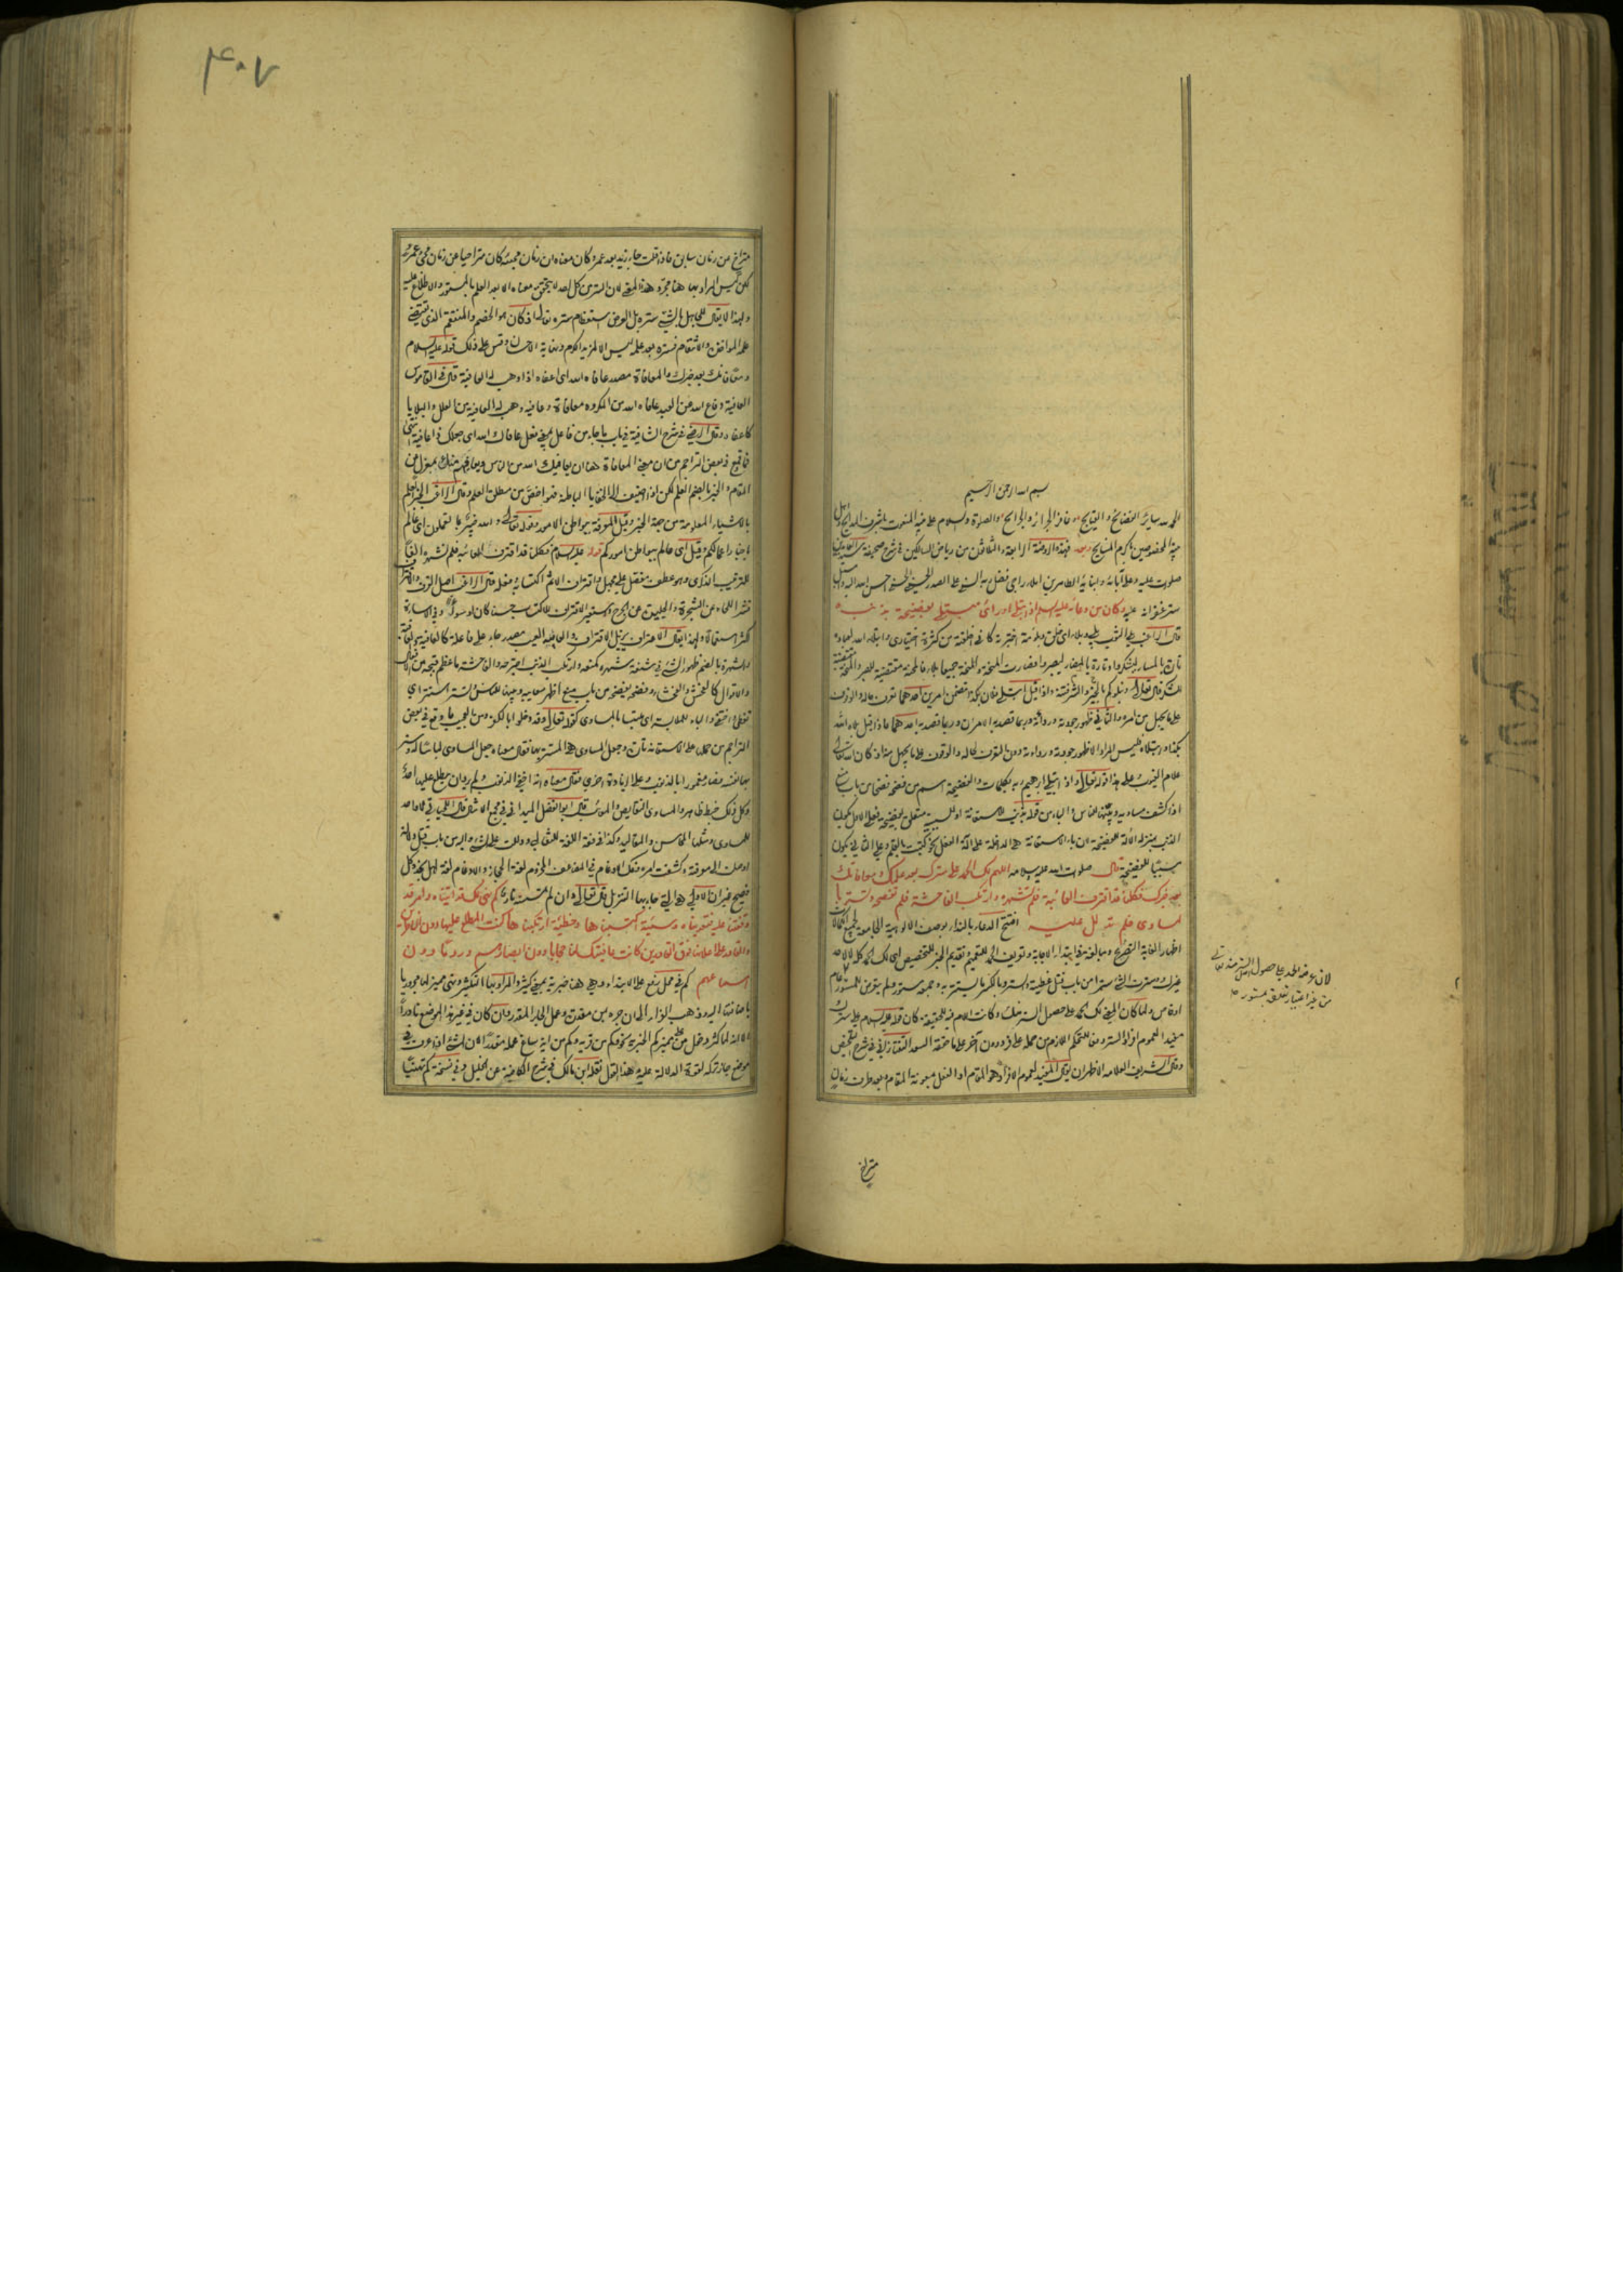 بسم الله الرحمن الرحيم
الحمد لله ساتر الفضائح والقبايح وغافر الجرائر والجرايح والصلوة والسلام على نبيه المنعوت باشرف المدايح وعلى اهل
بيته المخصوصين باكرم المنايح وبعد فهذه الروضة الرابعة والثلاثون من رياض السالكين في شرح صحيفة سيد العابدين
صلوات الله عليه وعلى آبائه وابنائه الطاهرين املاء راجي فضل ربه السني علي الصدر الحسيني الحسني احسن الله اليه واسبل
ستر غفرانه عليه وكان من دعائه عليه السلام اذا ابتلي او رأى مبتلى بفضيحة بذنب
قال الراغب بلي الثوب بلى وبلاء اي خلق وبلوته اختبرته كاني اخلقته من كثرة اختباري وابتلاء الله لعباده
تارة بالمسار ليشكروا وتارة بالمضار ليصبروا فصارت المحنة والمنحة جميعا بلاء فالمحنة مقتضية للصبر والمنحة مقتضية
للشكر قال تعالى ونبلوكم بالخير والشر فتنة واذا قيل ابتلى فلان بكذا تضمن امرين احدهما تعرف حاله والوقوف
على ما يجهل من امره والثاني ظهور جودته ورداءته وربما قصد به الامران وربما قصد به احدهما فاذا قيل بلاه الله
بكذا وابتلاه فليس المراد الا ظهور جودته ورداءته دون التعرف لحاله والوقوف على ما يجهل منه اذ كان الله تعالى
علام الغيوب على هذا قوله تعالى واذ ابتلى ابرهيم ربه بكلمات والفضيحة اسم من فضحه فضحا من باب منع
اذا كشف مساويه وبينها للناس والباء من قوله بذنب للاستعانة او للسببية متعلق بفضيحة فعلى الاول يكون
الذنب بمنزلة الالة للفضيحة لان باء الاستعانة هي الداخلة على آلة الفعل نحو كتبت بالقلم وعلى الثاني يكون
سببا للفضيحة قال صلوات الله وسلامه عليه اللهم لك الحمد على سترك بعد علمك ومعافاتك
بعد خبرك فكلنا قد اقترف العائبة فلم تشهره وارتكب الفاحشة فلم تفضحه وتستر با
لمساوي فلم تدلل عليه افتتح الدعاء بالنداء بوصف الالوهية الجامعة لجميع الكمالات
اظهارا لغاية التضرع ومبالغة في ابتداء الاجابة وتعريف الحمد للتعميم وتقديم الخبر للتخصيص اي لك الحمد كله لا لاحد
غيرك وسترت الشي سترا من باب قتل غطيته والستر بالكسر ما يستتر به وجمعه ستور ولم يتعرض للمستور أعام
او خاص ولما كان المعنى لك الحمد على حصول الستر منك وكانت اللام فيه للحقيقة كان قوله عليه السلام على سترك
مفيدا لعموم افراد الستر دفعا للتحكم اللازم من حمله على فرد دون آخر على ما حققه السعد التفتازاني في شرح التلخيص
وقال الشريف العلامة الاظهر ان يقال المفيد لعموم الافراد هو المقام او الفعل بمعونة المقام وبعد ظرف زمان
متراخ
لان عرضه الحمد على حصول الستر منه تعالى
من غير اعتبار تعلقه بمستور
٤٠٧
متراخ من زمان سابق فاذا قلت جاء زيد بعد عمرو كان معناه ان زمان مجيئه كان متراخيا عن زمان مجيء عمرو
لكن ليس المراد بها هنا مجرد هذا المعنى لان الستر من كل احد لا يتحقق معناه الا بعد العلم بالمستور والاطلاع عليه
ولهذا لا يقال للجاهل بالشيء ستره بل الغرض استعظام ستره تعالى اذ كان هو الخصم والمنتقم الذي يقتضي
علمه المؤاخذة والانتقام فستره بعد علمه ليس الا لمزيد الكرم ونهاية الاحسان وقس على ذلك قوله عليه السلام
ومعافاتك بعد خبرك والمعافاة مصدر عافاه الله اي اعفاه اذا وهب له العافية قال في القاموس
العافية دفاع الله عن العبد عافاه الله من المكروه معافاة وعافية وهب له العافية من العلل والبلايا
كاعفاه وقال الرضي في شرح الشافية في باب ما جاء من فاعل بمعنى فعل عافاك الله اي جعلك ذا عافية انتهى
فما وقع في بعض التراجم من ان معنى المعافاة هنا ان يعافيك الله من الناس ويعافيهم منك بمعزل عن
المقام والخبر بالضم العلم لكن اذا اضيف الى الخفايا الباطنة فهو اخص من مطلق العلم وقال الراغب الخبر العلم
بالاشياء المعلومة من جهة الخبر وقيل المعرفة ببواطن الامور وقوله تعالى والله خبير بما تعملون اي عالم
باخبار اعمالكم وقيل اي عالم ببواطن اموركم قوله عليه السلام فكلنا قد اقترف العائبة فلم تشهره الفاء
للترتيب الذكري وهو عطف مفصل على مجمل واقتراف الاثم اكتسابه وفعله قال الراغب اصل القرف والاقتراف
قشر اللحاء عن الشجرة والجليدة عن الجرح واستعير الاقتراف للاكتساب حسنا كان او سوءا وفي الاساءة
اكثر استعمالا ولهذا يقال الاعتراف يزيل الاقتراف والعائبة العيب مصدر جاء على فاعلة كالعافية والعاقبة
والشهرة بالضم ظهور الشيء في شنعة شهره كمنعه وارتكب الذنب اجترحه والفاحشة ما عظم قبحه من الافعال
والاقوال كالفحش والفحشاء وفضحه يفضحه من باب منع اظهر معايبه وبينها للناس وتستر استتر اي
تغطى واختفى والباء للملابسة اي ملتبسا بالمساوي كقوله تعالى وقد دخلوا بالكفر ومن العجب ما وقع في بعض
التراجم من حملها على الاستعانة تارة وجعل المساوي هي المستتر بها فقال معناه جعل المساوي لباسا له وستر
بها نفسه فصار مغمورا بالذنوب وعلى الزيادة اخرى فقال معناه انه اخفى الذنوب ولم يرد ان يطلع عليها احد
وكل ذلك خبط ظاهر والمساوي النقايص والمعائب قال ابو الفضل الميداني في مجمع الامثال قال اللحياني لا واحد
للمساوي ومثلها المحاسن والمقاليد وكذا في فقه اللغة للثعالبي ودللت على الشيء واليه من باب قتل دلالة
اوصلت الى معرفته وكشفت امره وفك الادغام في المضاعف المجزوم لغة الحجاز والادغام لغة اهل نجد وكل
فصيح غير ان الاولى هي التي جاء بها التنزيل قال تعالى وان لم تمسسه نار كم نهي لك قد اتيناه وامر قد
وقفتنا عليه فتعديناه وسيئة اكتسبناها وخطيئة ارتكبناها كنت المطلع عليها دون الناظرين
والقادر على اعلانها فوق القادرين كانت عافيتك لنا حجابا دون ابصارهم وردما دون
اسماعهم كم في محل رفع على الابتداء وهي هنا خبرية بمعنى كثير والمراد بها التكثير ونهي مميز لها مجرور بها
باضافتها اليه وذهب الفراء الى ان جره بمن مقدرة وعمل الجار المقدر وان كان في غير هذا الموضع نادرا
الا انه لما كثر دخول من على مميز كم الخبرية نحو كم من قرية وكم من آية ساغ عمله مقدرا لان الشيء اذا عرف في
موضع جاز تركه لقوة الدلالة عليه وهذا القول نقله ابن مالك في شرح الكافية عن الخليل وفي نسخة كم نهيا